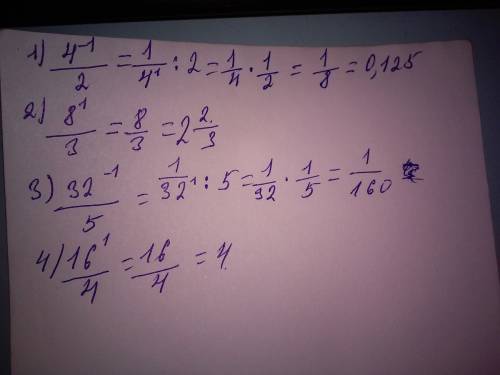 1) 4⁻¹/2 = 1/4¹ : 2 = 1/4 · 1/2 = 1/8 = 0,125
2) 8¹/3 = 8/3 = 2 2/3
3) 32⁻¹/5 = 1/32¹ : 5 = 1/32 · 1/5 = 1/160
4) 16¹/4 = 16/4 = 4.